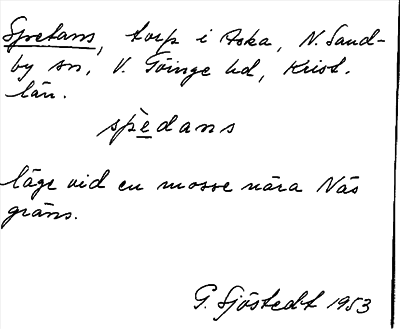 Spretans, torp i Aska, N. Sand-
by sn, V. Göinge hd, Krist.
län.
spèdans
läge vid en mosse nära Näs
gräns.
G. Sjöstedt 1953